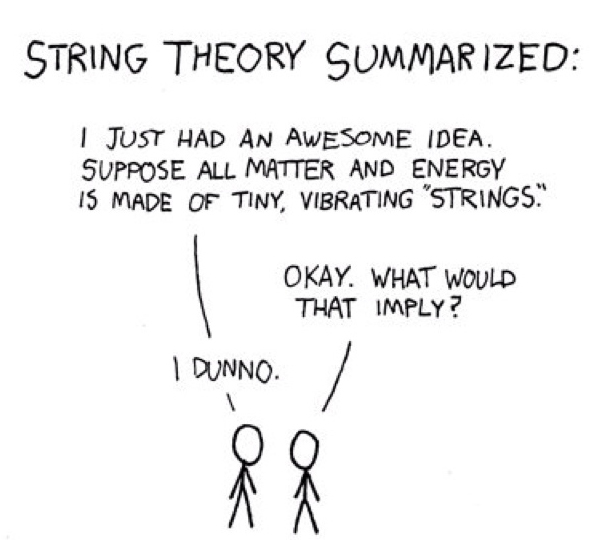 STRING THEORY SUMMARIZED:
I JUST HAD AN AWESOME IDEA.
SUPPOSE ALL MATTER AND ENERGY
IS MADE OF TINY, VIBRATING "STRINGS."
OKAY. WHAT WOULD
THAT IMPLY?
I DUNNO.